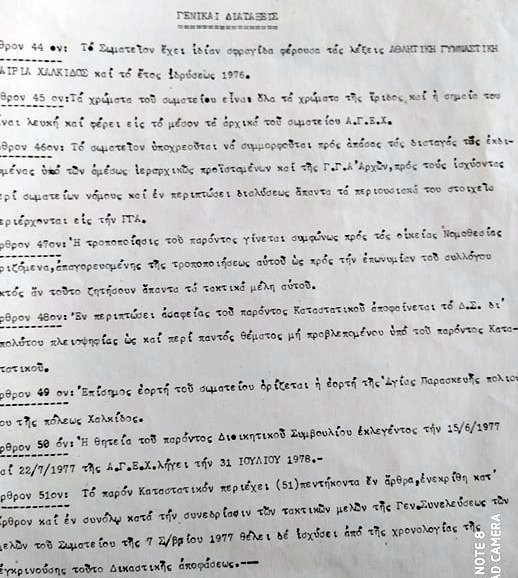 ΓΕΝΙΚΑΙ ΔΙΑΤΑΞΕΙΣ
θρον 44 ον: Τό Σωματεῖον ἔχει ἰδίαν σφραγίδα φέρουσα τάς λέξεις ΑΘΛΗΤΙΚΗ ΓΥΜΝΑΣΤΙΚΗ
ΑΙΡΙΑ ΧΑΛΚΙΔΟΣ καί τό ἔτος ἱδρύσεως 1976.
θρον 45 ον:Τά χρώματα τοῦ σωματείου εἶναι ὅλα τά χρώματα τῆς ἴριδος,καί ἡ σημαία του
ναι λευκή καί φέρει εἰς τό μέσον τά ἀρχικά τοῦ σωματείου Α.Γ.Ε.Χ.
θρον 46ον: Τό σωματεῖον ὑποχρεοῦται νά συμμορφοῦται πρός ἁπάσας τάς διαταγάς τάς ἐκδι-
ομένας ὑπό τῶν ἀμέσως ἱεραρχικῶς προϊσταμένων καί τῆς Γ.Γ.Α Ἀρχῶν,πρός τούς ἰσχύοντας
ερί σωματείων νόμους καί ἐν περιπτώσει διαλύσεως ἅπαντα τά περιουσιακά του στοιχεῖα
εριέρχονται εἰς τήν ΓΓΑ.
ρθρον 47ον:Ἡ τροποποίησις τοῦ παρόντος γίνεται συμφώνως πρός τά οἰκεῖας Νομοθεσίας
ριζόμενα,ἀπαγορευομένης τῆς τροποποιήσεως αὐτοῦ ὡς πρός τήν ἐπωνυμίαν τοῦ συλλόγου
κτός ἄν τοῦτο ζητήσουν ἅπαντα τά τακτικά μέλη αὐτοῦ.
ρθρον 48ον:Ἐν περιπτώσει ἀσαφείας τοῦ παρόντος Καταστατικοῦ ἀποφαίνεται τό Δ.Σ. δι'
πολύτου πλειοψηφίας ὡς καί περί παντός θέματος μή προβλεπομένου ὑπό τοῦ παρόντος Κατα-
τατικοῦ.
ρθρον 49 ον:Ἐπίσημος ἑορτή τοῦ σωματείου ὁρίζεται ἡ ἑορτή τῆς Ἁγίας Παρασκευῆς πολιού
ου τῆς πόλεως Χαλκίδος.
ρθρον 50 όν:Ἡ θητεία τοῦ παρόντος Διοικητικοῦ Συμβουλίου ἐκλεγέντος τήν 15/6/1977
αί 22/7/1977 τῆς Α.Γ.Ε.Χ.λήγει τήν 31 ΙΟΥΛΙΟΥ 1978.-
ρθρον 51ον: Τό παρόν Καταστατικόν περιέχει (51)πεντήκοντα ἕν ἄρθρα,ἐνεκρίθη κατ'
ρθρον καί ἐν συνόλῳ κατά τήν συνεδρίασιν τῶν τακτικῶν μελῶν τῆς Γεν.Συνελεύσεως τῶν
ελῶν τοῦ Σωματείου τῆς 7 Σ/βρίου 1977 θέλει δέ ἰσχύσει ἀπό τῆς χρονολογίας τῆς
γκρινούσης τοῦτο Δικαστικῆς ἀποφάσεως.---
NOTE 8
AD CAMERA